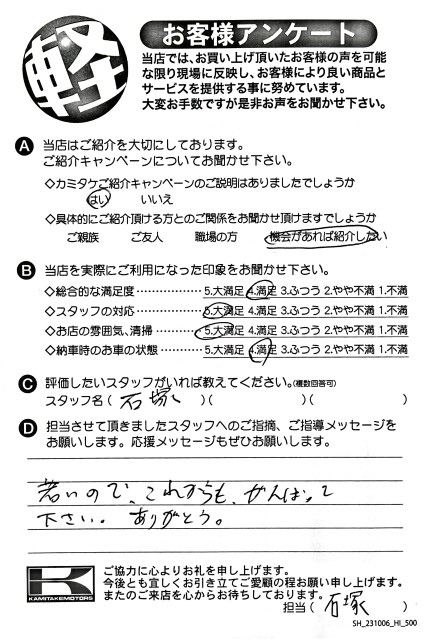 軽
お客様アンケート
当店では、お買い上げ頂いたお客様の声を可能
な限り現場に反映し、お客様により良い商品と
サービスを提供する事に努めています。
大変お手数ですが是非お声をお聞かせ下さい。
A 当店はご紹介を大切にしております。
ご紹介キャンペーンについてお聞かせ下さい。
◇カミタケご紹介キャンペーンのご説明はありましたでしょうか
はい いいえ
◇具体的にご紹介頂ける方とのご関係をお聞かせ頂けますでしょうか
ご親族 ご友人 職場の方 機会があれば紹介したい
B 当店を実際にご利用になった印象をお聞かせ下さい。
◇総合的な満足度 5.大満足 4.満足 3.ふつう 2.やや不満 1.不満
◇スタッフの対応 5.大満足 4.満足 3.ふつう 2.やや不満 1.不満
◇お店の雰囲気、清掃 5.大満足 4.満足 3.ふつう 2.やや不満 1.不満
◇納車時のお車の状態 5.大満足 4.満足 3.ふつう 2.やや不満 1.不満
C 評価したいスタッフがいれば教えてください。(複数回答可)
スタッフ名 ( 石塚 ) ( ) ( )
D 担当させて頂きましたスタッフへのご指摘、ご指導メッセージを
お願いします。応援メッセージもぜひお願いします。
若いので、これからも、がんばって
下さい。 ありがとう。
KAMITAKEMOTORS
ご協力に心よりお礼を申し上げます。
今後とも宜しくお引き立てご愛顧の程お願い申し上げます。
またのご来店を心からお待ちしております。
担当 ( 石塚 )
SH_231006_HI_500